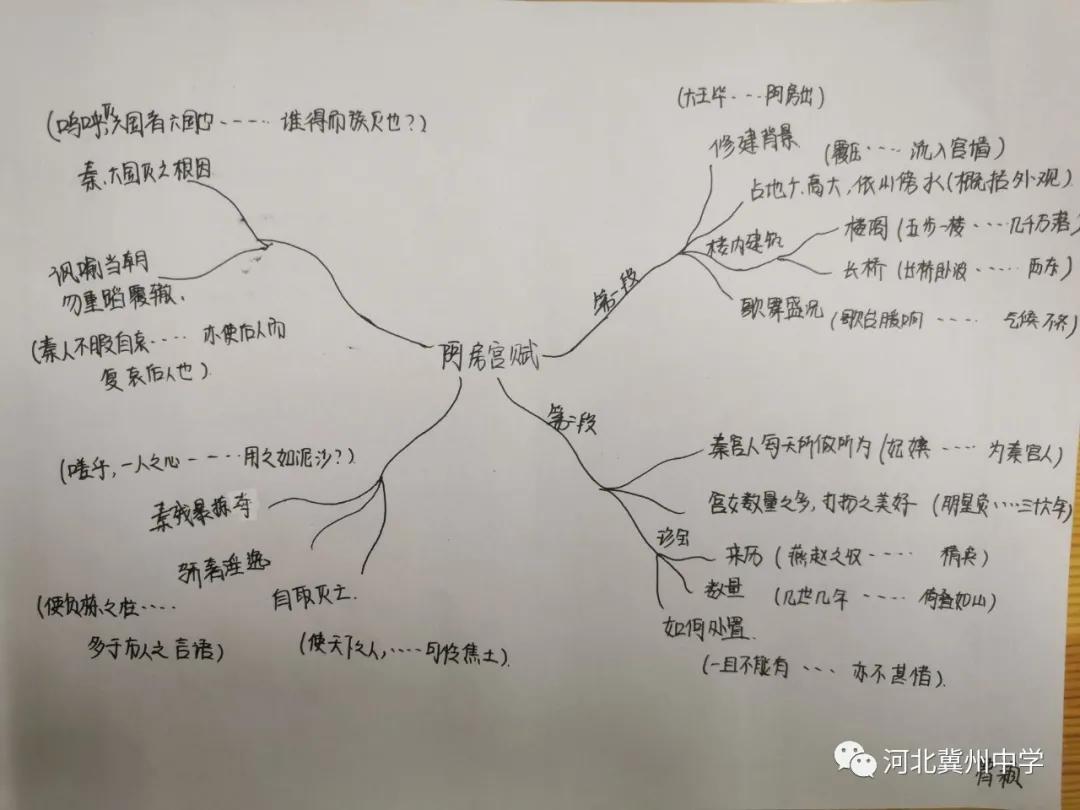 阿房宫赋
第一段
(六王毕...阿房出)
修建背景
(覆压....流入宫墙)
占地广,高大,依山傍水(概括外观)
楼内建筑
楼阁(五步一楼....几千万落)
长桥(长桥卧波.....西东)
歌舞盛况(歌台暖响.....气候不齐)
第二段
秦宫人每天所做所为(妃嫔....为秦宫人)
宫女数量之多,打扮之美好(明星荧....三十六年)
珍宝
来历(燕赵之收.....精英)
数量(几世几年.....倚叠如山)
如何处置
(一旦不能有....亦不甚惜).
(嗟乎,一人之心.....用之如泥沙?)
秦残暴掠夺
骄奢淫逸
(使负栋之柱.....
多于市人之言语)
自取灭亡.
(使天下之人,.....可怜焦土).
(呜呼!灭六国者六国也.....谁得而族灭也?)
秦,六国灭之根因
讽喻当朝
勿重蹈覆辙.
(秦人不暇自哀.....亦使后人而
复哀后人也).
河北冀州中学